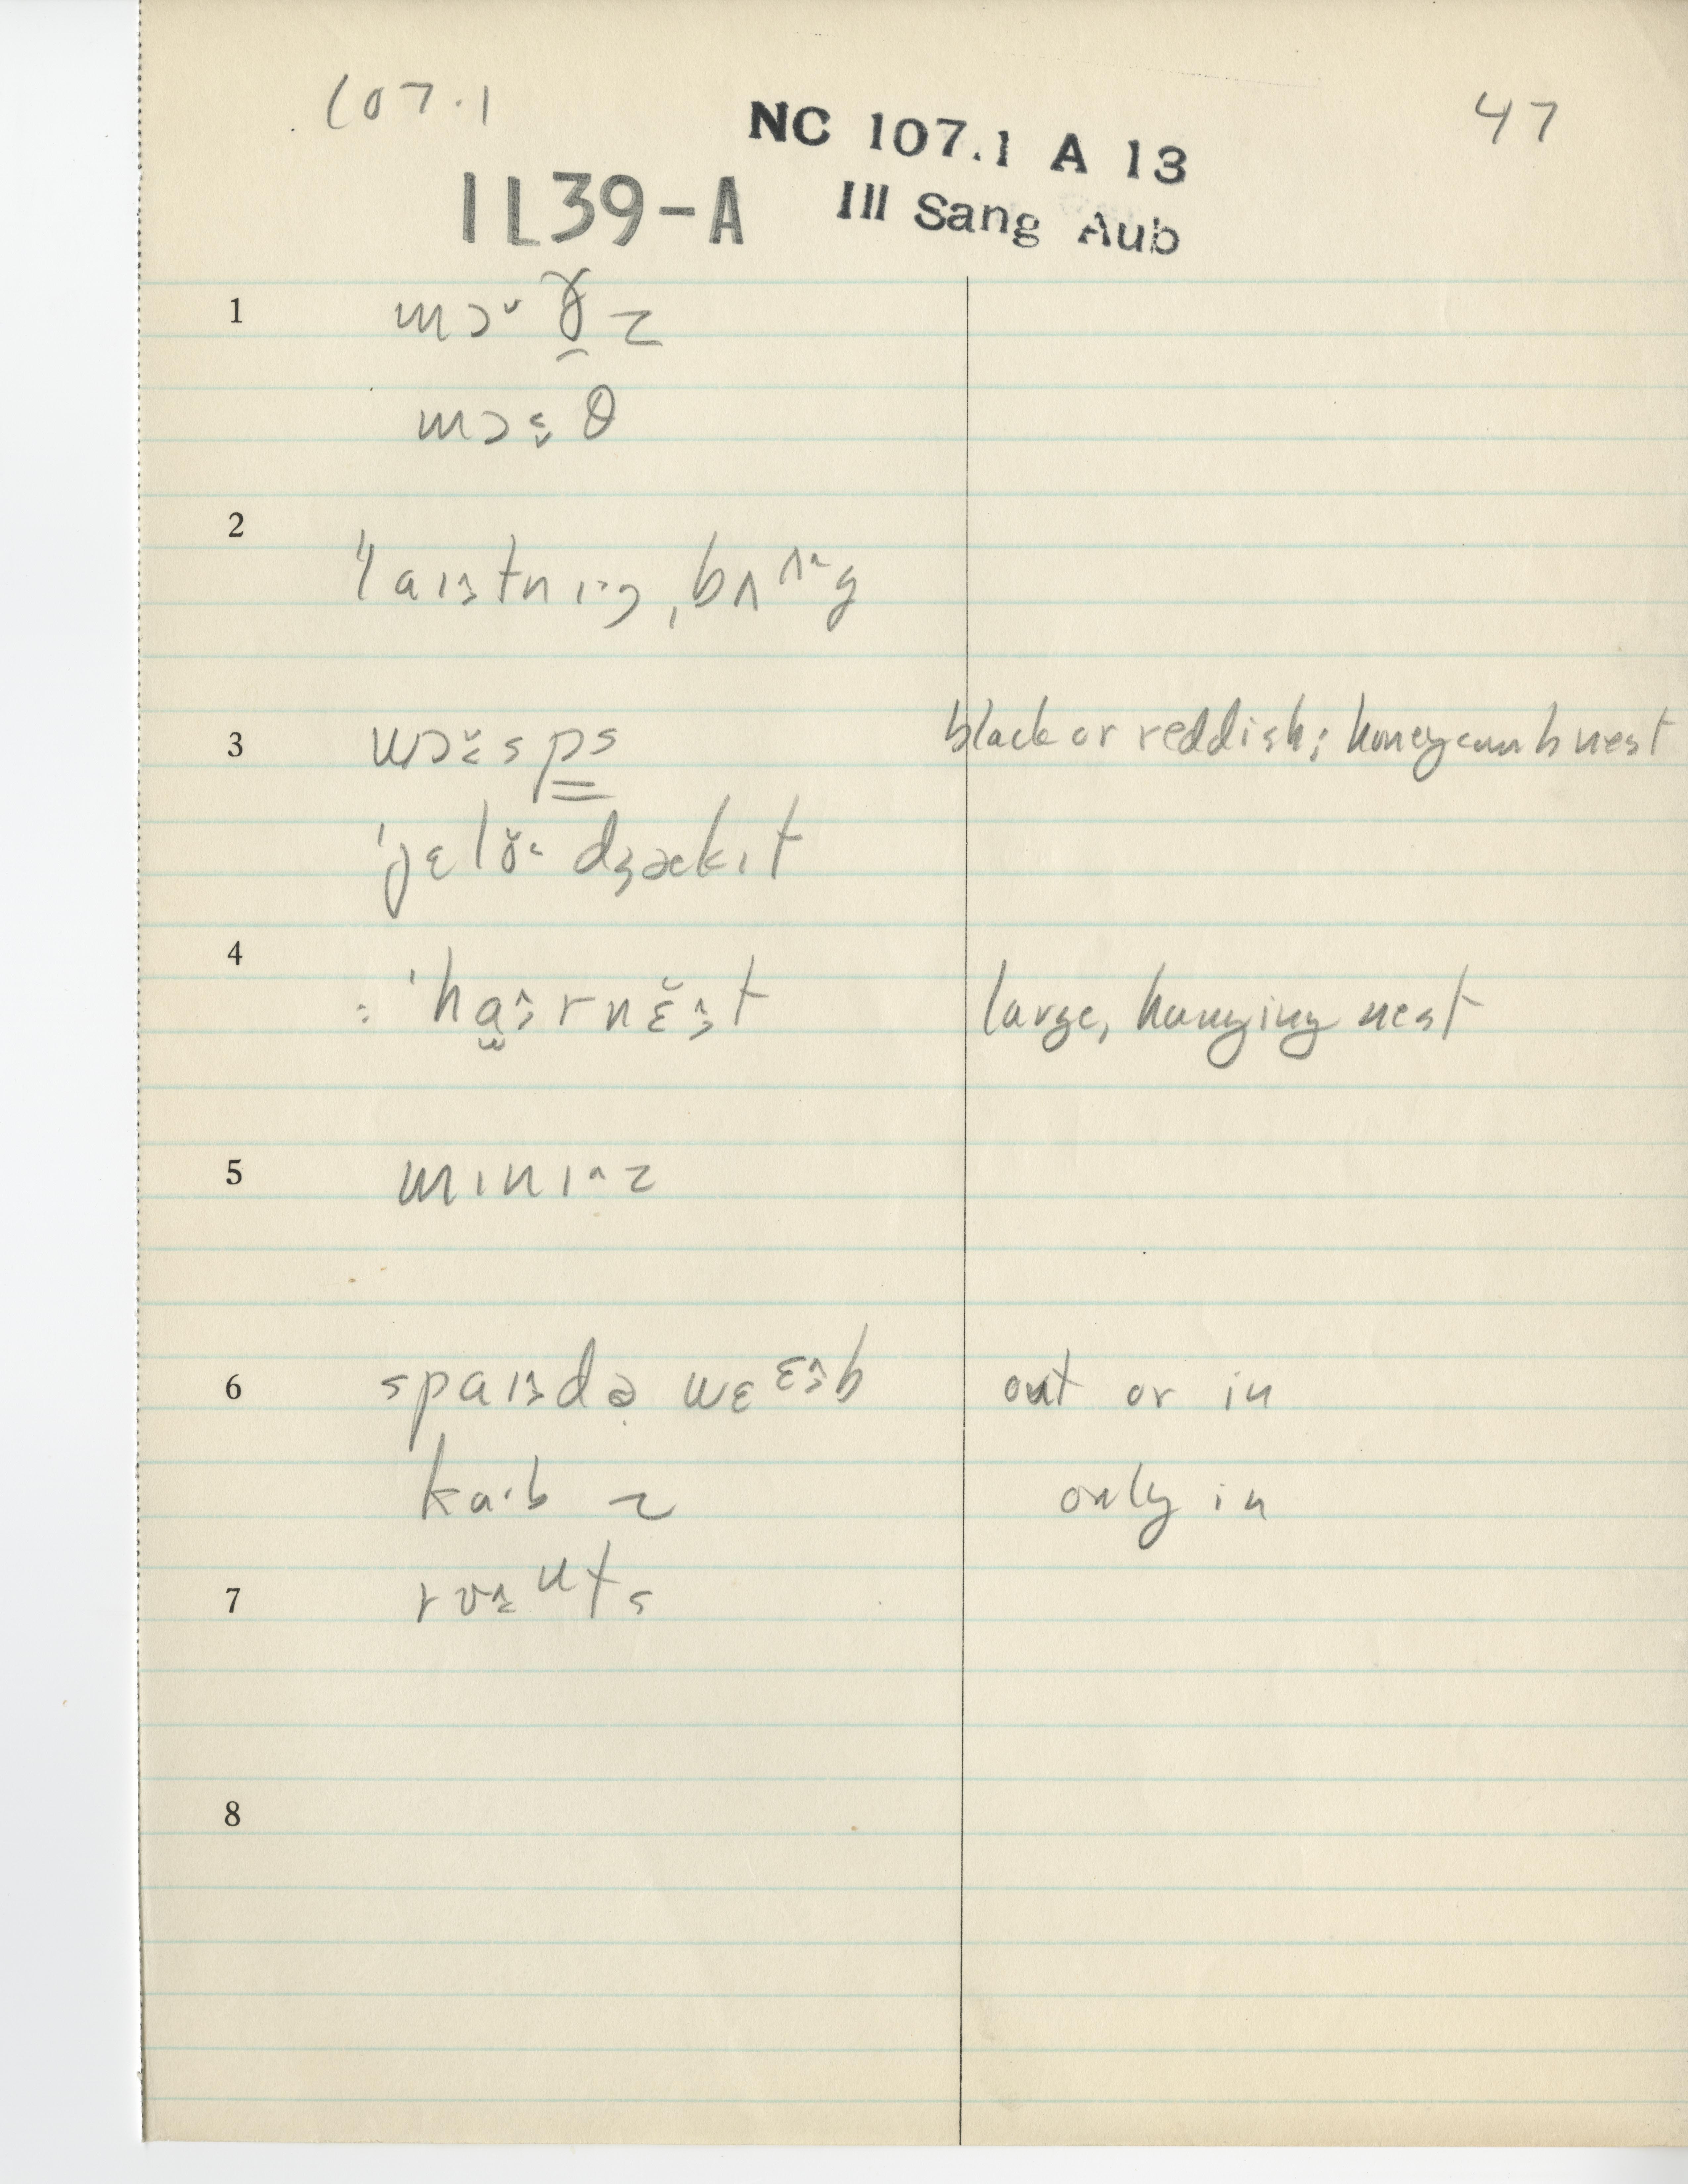 107.1
47
NC 107.1 A 13
IL39-A
Ill Sang Aub
1
mɔ˅ɣ̑z
mɔɛ̬θ
2
ˈlaɪɜtnɪ·ŋ ˌbʌʌ^g
3
wɔɛ̆sps black or reddish; honeycomb nest
ˈjɛlɤ˂ dʒækɪt
4
: ˈha̫ɜ̂rnɛ̆ɜst large, hanging nest
5
mɪnɪ^z
6
spaɪɜdə̣ wɛɛɜ̂b out or in
ka·b ~ only in
7
rʊɛ̂uts
8